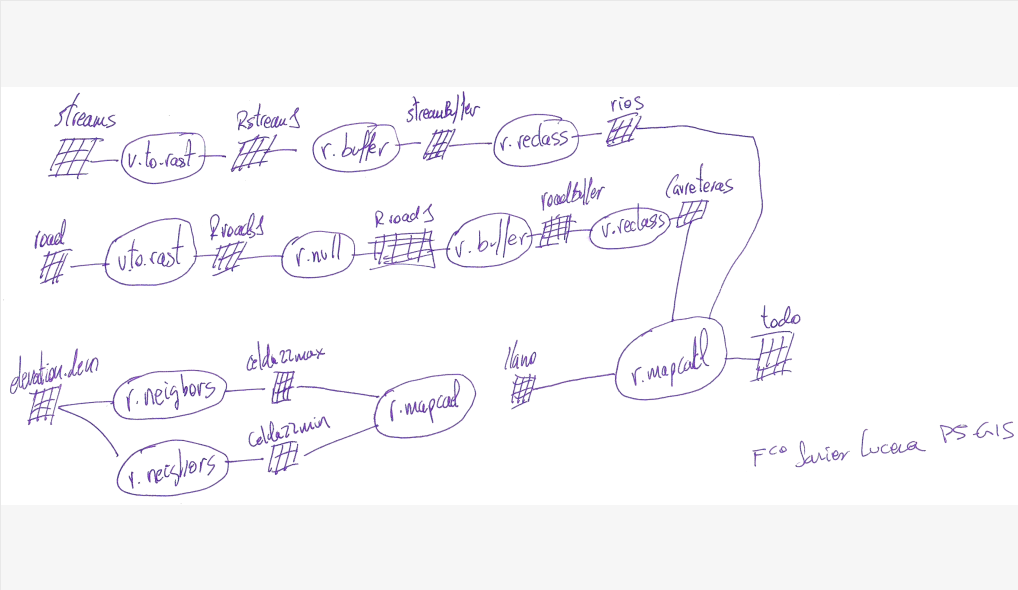 streams
v.to.rast
Rstream1
r.buffer
streambuffer
r.reclass
rios
road
v.to.rast
Rroads1
r.null
Rroads1
r.buffer
roadbuffer
r.reclass
Carreteras
elevation.dem
r.neigbors
celdazzmax
r.neighbors
celdazzmin
r.mapcal
llano
r.mapcal
todo
Fco Javier Lucena PS GIS